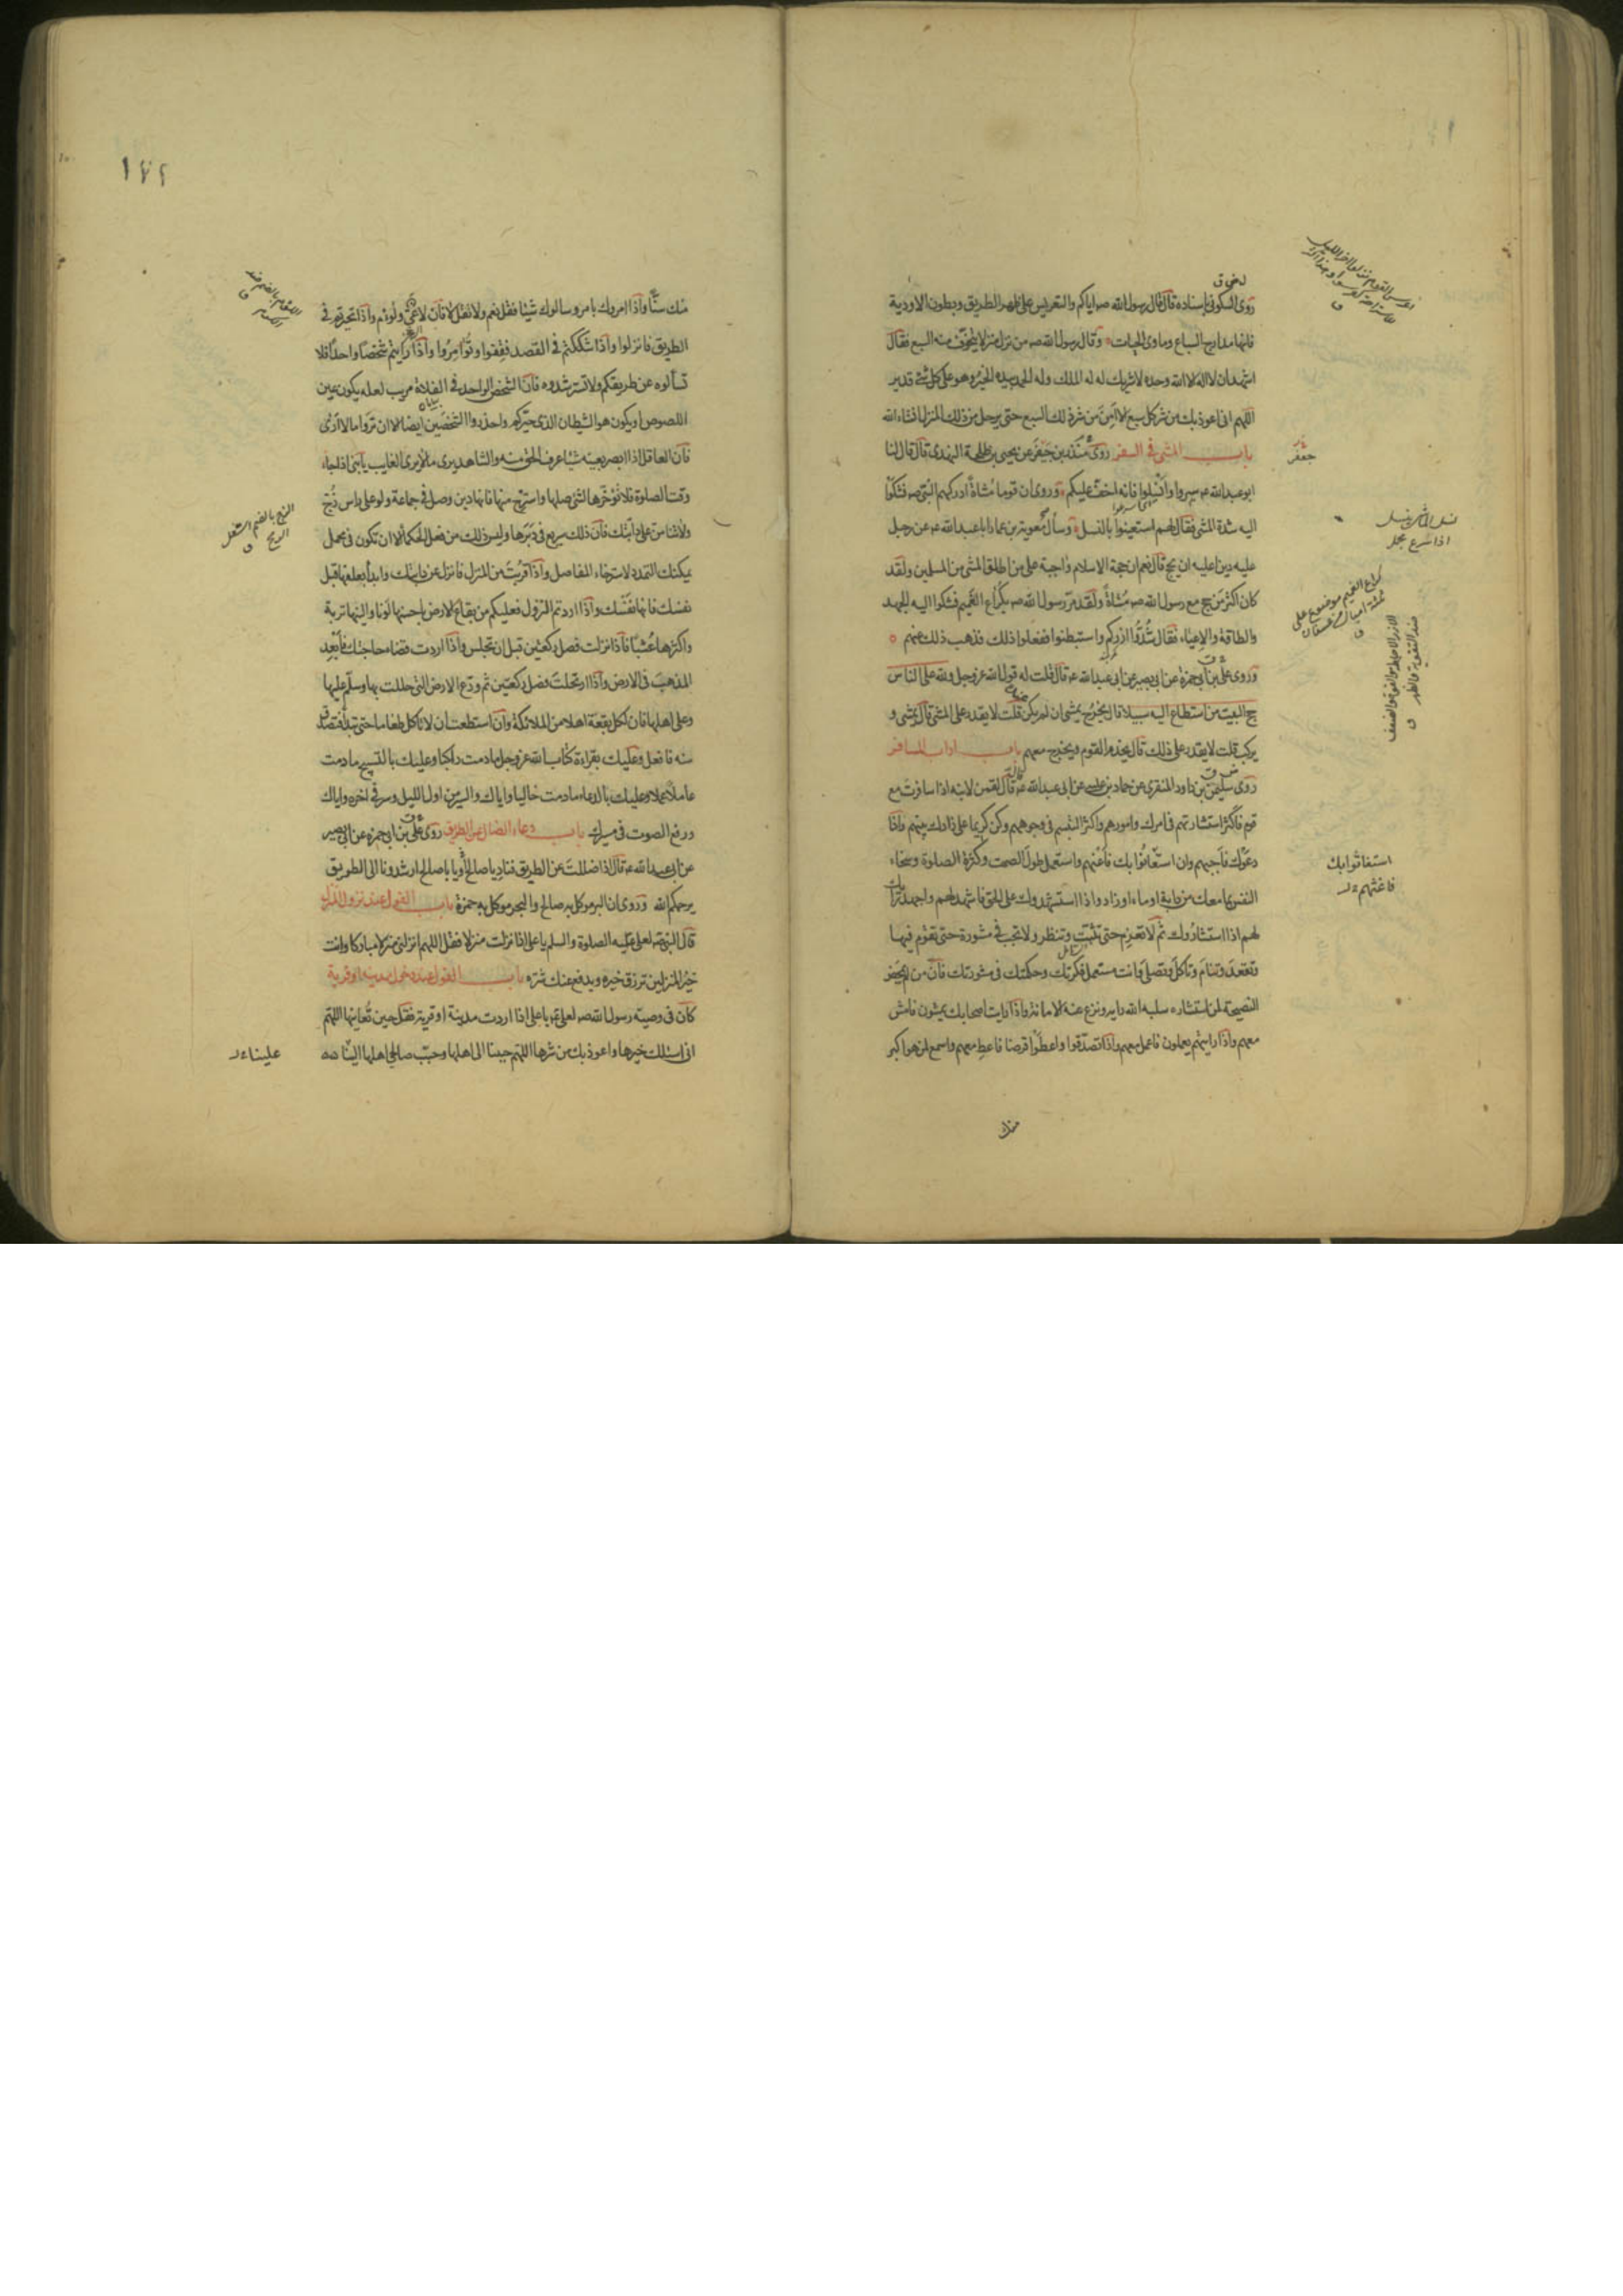 روى السكوني باسناده قال قال رسول الله صه اياكم والتعريس على ظهر الطريق وبطون الاودية
فانها مدارج السباع وماوى الحيات وقال رسول الله صه من نزل منزلا يتخوف منه السبع فقال
اشهد ان لا اله الا الله وحده لا شريك له له الملك وله الحمد بيده الخير وهو على كل شئ قدير
اللهم انى اعوذ بك من شر كل سبع الا امن من شر ذلك السبع حتى يرحل من ذلك المنزل انشاء الله
باب المشى فى السفر روى منذر بن جيفر عن يحيى بن طلحة النهدى قال قال لنا
ابو عبدالله عه سيروا وانسلوا فانه اخف عليكم وروى ان قوما مشاة ادركهم النبى صه فشكوا
اليه شدة المشى فقال لهم استعينوا بالنسل وسأل معوية بن عمار ابا عبدالله عه عن رجل
عليه دين اعليه ان يحج قال نعم ان حجة الاسلام واجبة على من اطاق المشى من المسلمين ولقد
كان اكثر من حج مع رسول الله صه مشاة ولقد مر رسول الله صه بكراع الغميم فشكوا اليه الجهد
والطاقة والاعياء فقال شدوا ازركم واستبطنوا ففعلوا ذلك فذهب ذلك عنهم
وروى على بن ابى حمزة عن ابى بصير عن ابى عبدالله عه قال قلت له قول الله عز وجل ولله على الناس
حج البيت من استطاع اليه سبيلا قال يخرج يمشى ان لم يكن عنده قلت لا يقدر على المشى قال يمشى و
يركب قلت لا يقدر على ذلك قال يخدم القوم ويخرج معهم باب اداب المسافر
روى سليمن بن داود المنقرى عن حماد بن عيسى عن ابى عبدالله عه قال قال لقمن لابنه اذا سافرت مع
قوم فاكثر استشارتهم فى امرك وامورهم واكثر التبسم فى وجوههم وكن كريما على زادك بينهم واذا
دعوك فاجبهم وان استعانوا بك فاعنهم واستعمل طول الصمت وكثرة الصلوة وسخاء
النفس بما معك من دابة او ماء او زاد واذا استشهدوك على الحق فاشهد لهم واجهد رايك
لهم اذا استشاروك ثم لا تعزم حتى تثبت وتنظر ولا تجب فى مشورة حتى تقوم فيها
وتقعد وتنام وتاكل وتصلى وانت مستعمل فكرتك وحكمتك فى مشورتك فان من لم يمحض
النصيحة لمن استشاره سلبه الله رايه ونزع عنه الامانة واذا رايت اصحابك يمشون فامش
معهم واذا رايتهم يعملون فاعمل معهم واذا تصدقوا واعطوا قرضا فاعط معهم واسمع لمن هو اكبر
منك
جعفر
نسل الماشى ينسل
اذا اسرع عجل
كراع الغميم موضع على
ثلثة اميال من عسفان
ق
استغاثوا بك
فاغثهم ل
١٧٢
منك سنا واذا امروك بامر وسالوك شيئا فقل نعم ولا تقل لا فان لا عى ولؤم واذا تحيرتم فى
الطريق فانزلوا واذا شككتم فى القصد فقفوا وتوامروا واذا رايتم شخصا واحدا فلا
تسألوه عن طريقكم ولا تسترشدوه فان الشخص الواحد فى الفلاة مريب لعله يكون عين
اللصوص او يكون هو الشيطان الذى حيركم واحذروا الشخصين ايضا الا ان تروا ما لا ارى
فان العاقل اذا ابصر بعينه شيئا عرف الحق منه والشاهد يرى ما لا يرى الغايب يا بنى اذا جاء
وقت الصلوة فلا تؤخرها لشئ صلها واسترح منها فانها دين وصل فى جماعة ولو على راس زج
ولا تنامن على دابتك فان ذلك سريع فى دبرها وليس ذلك من فعل الحكماء الا ان تكون فى محمل
يمكنك التمدد لاسترخاء المفاصل واذا قربت من المنزل فانزل عن دابتك وابدأ بعلفها قبل
نفسك فانها نفسك واذا اردتم النزول فعليكم من بقاع الارض باحسنها لونا والينها تربة
واكثرها عشبا فاذا نزلت فصل ركعتين قبل ان تجلس واذا اردت قضاء حاجتك فابعد
المذهب فى الارض واذا ارتحلت فصل ركعتين ثم ودع الارض التى حللت بها وسلم عليها
وعلى اهلها فان لكل بقعة اهلا من الملائكة وان استطعت ان لا تاكل طعاما حتى تبدأ فتصدق
منه فافعل وعليك بقراءة كتاب الله عز وجل ما دمت راكبا وعليك بالتسبيح ما دمت
عاملا عملا وعليك بالدعاء ما دمت خاليا واياك والسير من اول الليل وسر فى اخره واياك
ورفع الصوت فى مسيرك باب دعاء الضال عن الطريق روى على بن ابى حمزه عن ابى بصير
عن ابى عبدالله عه قال اذا ضللت عن الطريق فناد يا صالح او يا با صالح ارشدونا الى الطريق
يرحمكم الله وروى ان البر موكل به صالح والبحر موكل به حمزة باب القول عند نزول المنزل
قال النبى صه لعلى عليه الصلوة والسلم يا على اذا نزلت منزلا فقل اللهم انزلنى منزلا مباركا وانت
خير المنزلين ترزق خيره ويدفع عنك شره باب القول عند دخول مدينة او قرية
كان فى وصية رسول الله صه لعلى عه يا على اذا اردت مدينة او قرية فقل حين تعاينها اللهم
انى اسئلك خيرها واعوذ بك من شرها اللهم حببنا الى اهلها وحبب صالحى اهلها الينا صه
الزج بالضم
ق
علينا ل